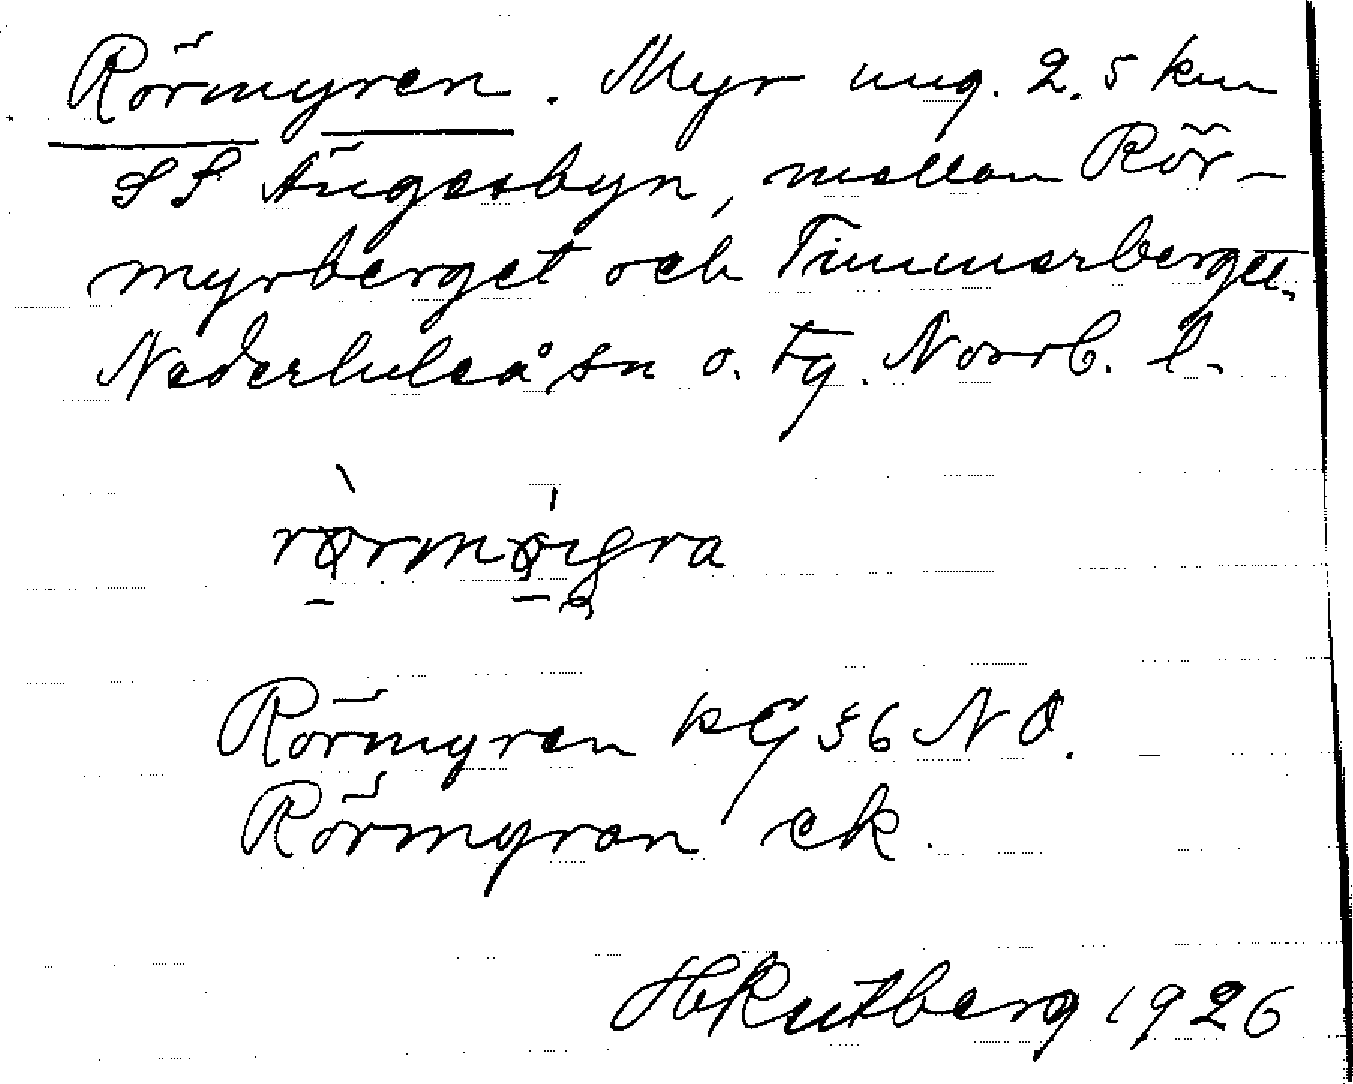 Rörmyren. Myr ung. 2.5 km
SS Ängesbyn, mellan Rör-
myrberget och Timmerberget.
Nederluleå sn o. tg. Norrb. l.
Rörmyren kG 36 NO.
Rörmyran ek.
HRutberg 1926